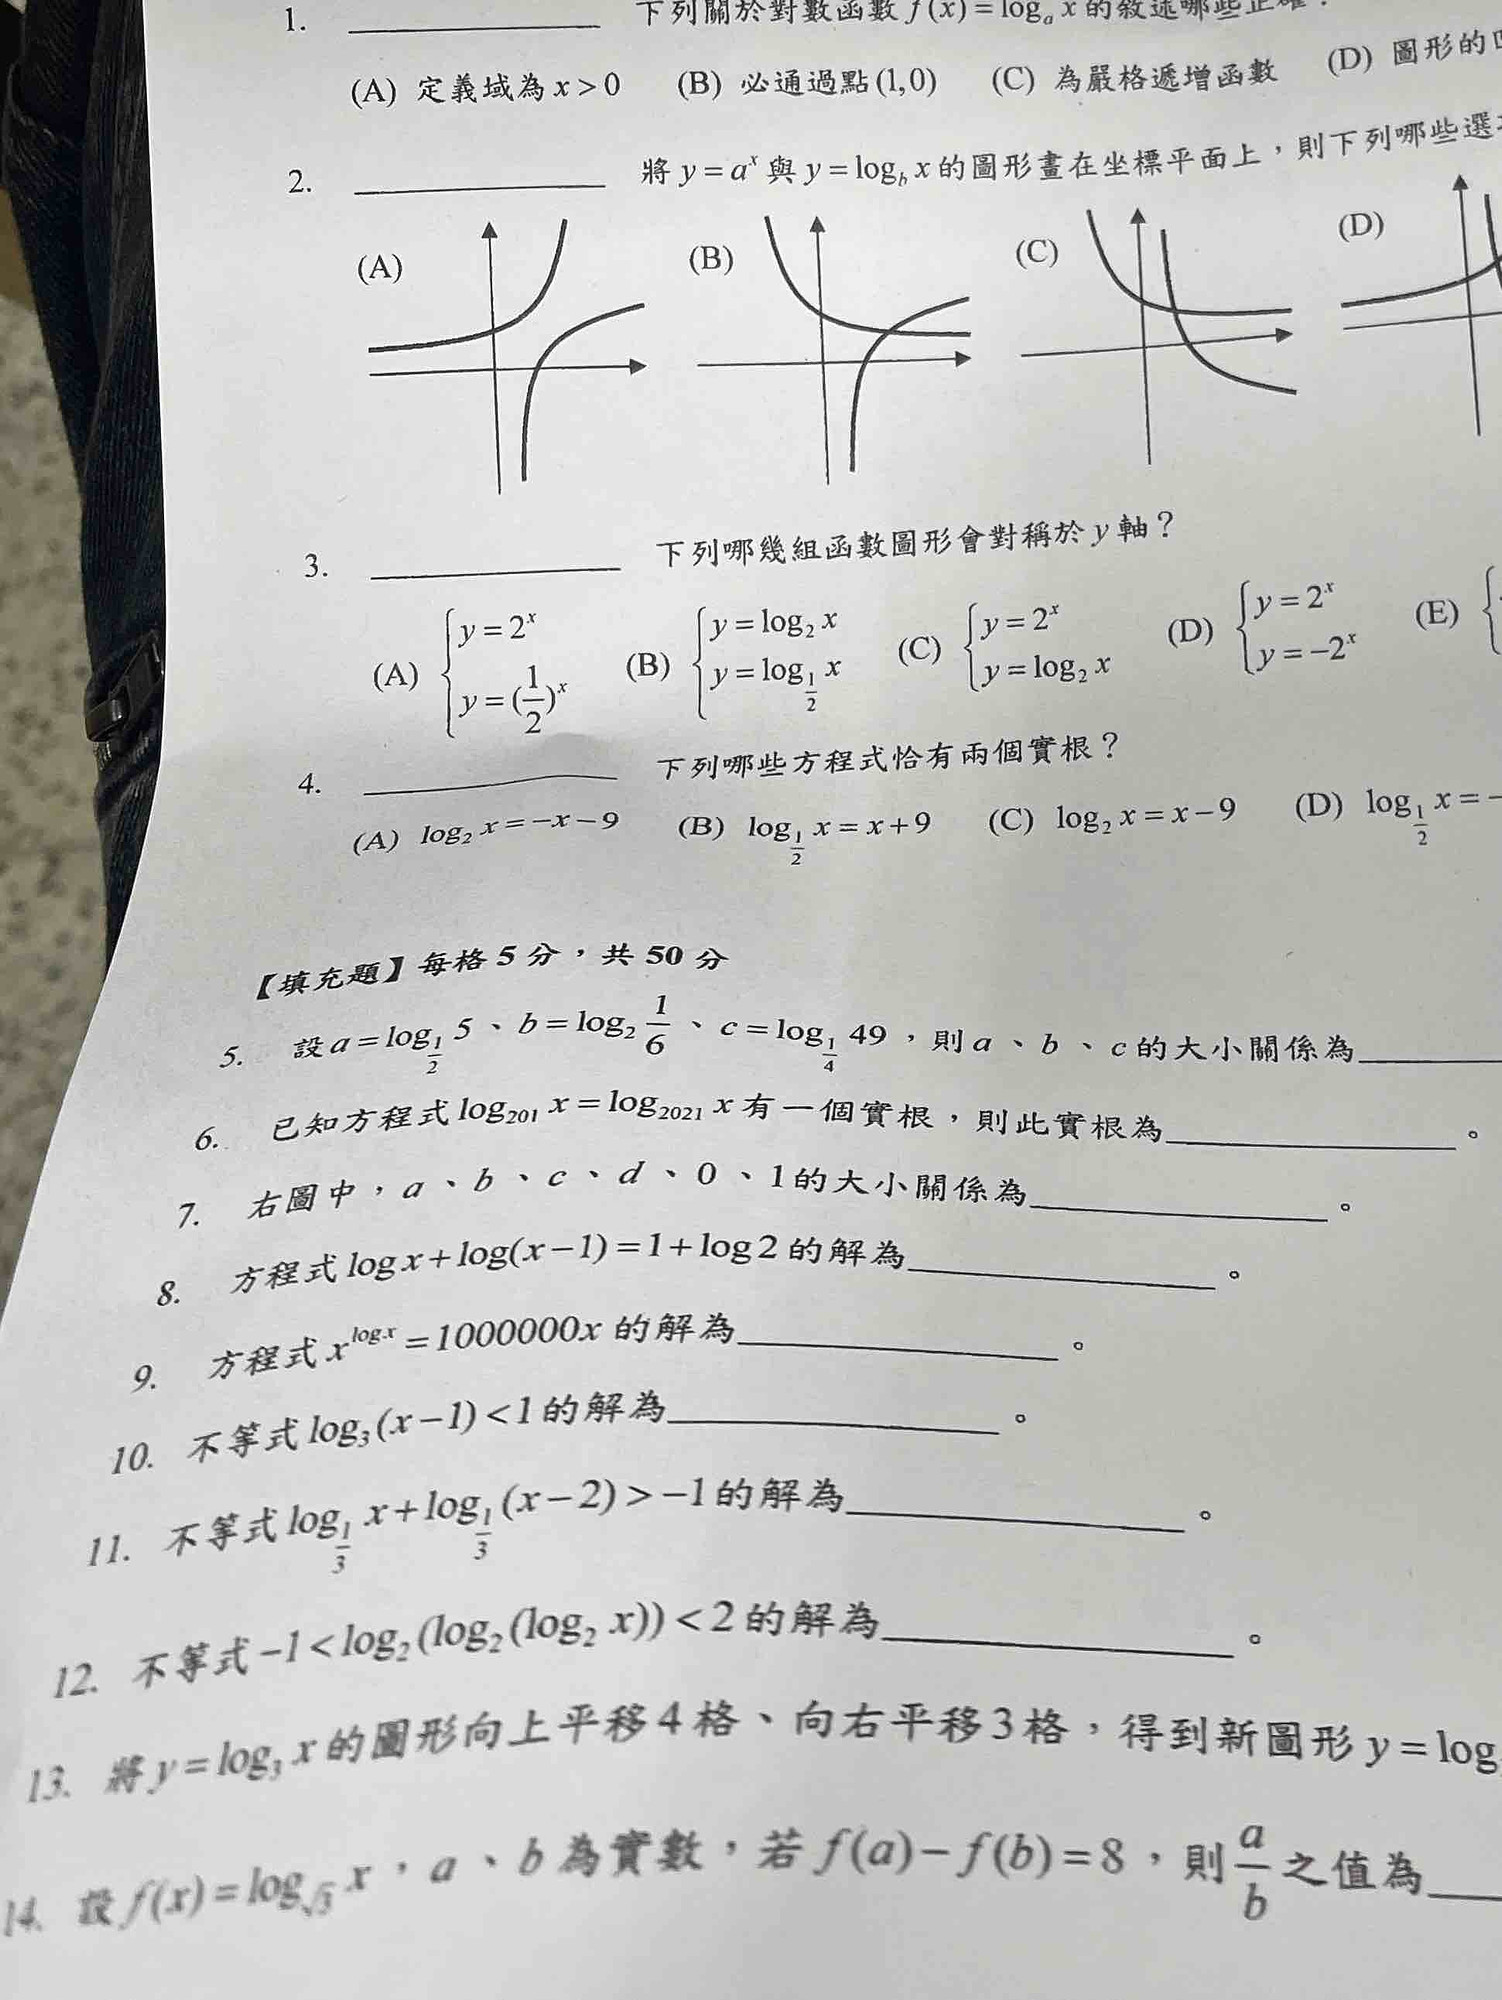 1. ________ 下列關於對數函數 f(x) = logₐ x 的敘述哪些正確？
(A) 定義域為 x > 0 (B) 必通過點 (1,0) (C) 為嚴格遞增函數 (D) 圖形的
2. ________ 將 y = aˣ 與 y = log_b x 的圖形畫在坐標平面上，則下列哪些選
(A) (B) (C) (D)
3. ________ 下列哪幾組函數圖形會對稱於 y 軸？
(A) { y = 2ˣ, y = (1/2)ˣ (B) { y = log₂ x, y = log_{1/2} x (C) { y = 2ˣ, y = log₂ x (D) { y = 2ˣ, y = −2ˣ (E) {
4. ________ 下列哪些方程式恰有兩個實根？
(A) log₂ x = −x − 9 (B) log_{1/2} x = x + 9 (C) log₂ x = x − 9 (D) log_{1/2} x = −
【填充題】每格 5 分，共 50 分
5. 設 a = log_{1/2} 5、b = log₂ 1/6、c = log_{1/4} 49，則 a、b、c 的大小關係為________
6. 已知方程式 log₂₀₁ x = log₂₀₂₁ x 有一個實根，則此實根為________。
7. 右圖中，a、b、c、d、0、1 的大小關係為________。
8. 方程式 log x + log(x − 1) = 1 + log 2 的解為________。
9. 方程式 x^{log x} = 1000000x 的解為________。
10. 不等式 log₃(x − 1) < 1 的解為________。
11. 不等式 log_{1/3} x + log_{1/3}(x − 2) > −1 的解為________。
12. 不等式 −1 < log₂(log₂(log₂ x)) < 2 的解為________。
13. 將 y = log₃ x 的圖形向上平移 4 格、向右平移 3 格，得到新圖形 y = log
14. 設 f(x) = log_{√3} x，a、b 為實數，若 f(a) − f(b) = 8，則 a/b 之值為____